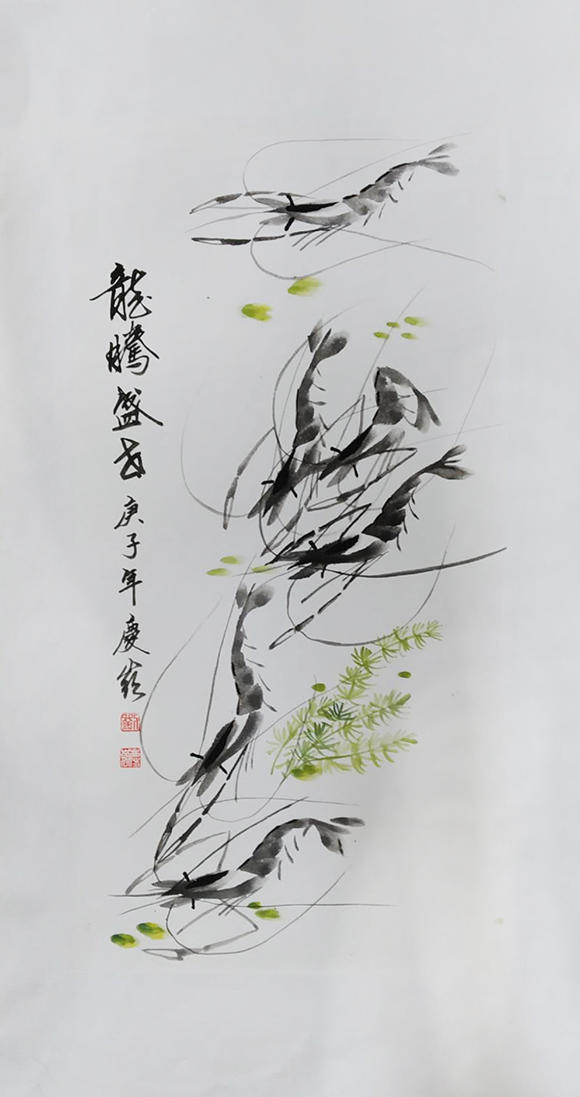 龍騰盛世庚子年慶嶺